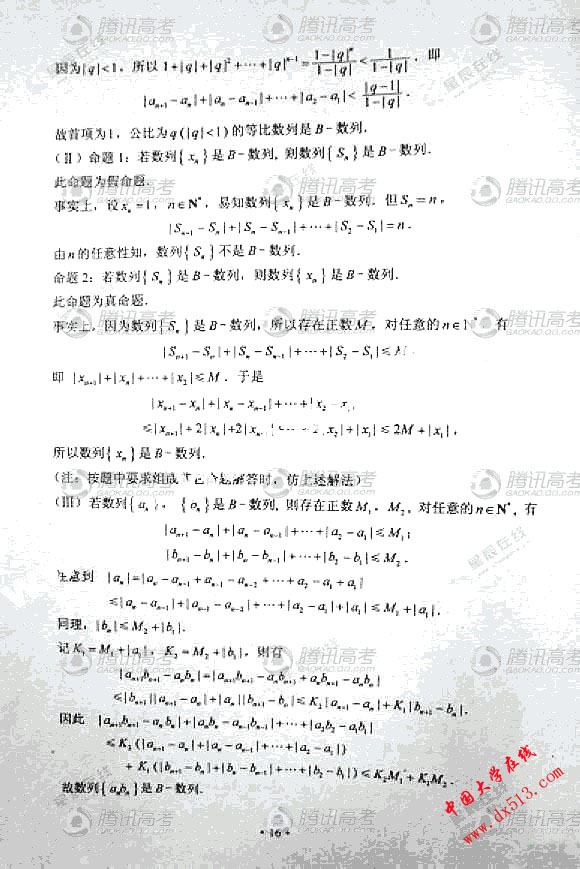 因为|q|<1，所以 1+|q|+|q|²+⋯+|q|ⁿ⁻¹ = (1-|q|ⁿ)/(1-|q|) < 1/(1-|q|)，即
|aₙ₊₁-aₙ|+|aₙ-aₙ₋₁|+⋯+|a₂-a₁| < |q-1|/(1-|q|)．
故首项为1，公比为q(|q|<1)的等比数列是B-数列．
(II) 命题1：若数列{xₙ}是B-数列，则数列{Sₙ}是B-数列．
此命题为假命题．
事实上，设xₙ=1，n∈N*，易知数列{xₙ}是B-数列，但Sₙ=n，
|Sₙ₊₁-Sₙ|+|Sₙ-Sₙ₋₁|+⋯+|S₂-S₁|=n．
由n的任意性知，数列{Sₙ}不是B-数列．
命题2：若数列{Sₙ}是B-数列，则数列{xₙ}是B-数列．
此命题为真命题．
事实上，因为数列{Sₙ}是B-数列，所以存在正数M，对任意的n∈ 有
|Sₙ₊₁-Sₙ|+|Sₙ-Sₙ₋₁|+⋯+|S₂-S₁|≤M
即 |xₙ₊₁|+|xₙ|+⋯+|x₂|≤M．于是
|xₙ₊₁-xₙ|+|xₙ-xₙ₋₁|+⋯+|x₂-x₁
≤|xₙ₊₁|+2|xₙ|+2|xₙ₋₁ +⋯+2 x₂|+|x₁|≤2M+|x₁|，
所以数列{xₙ}是B-数列．
(注：按题中要求组成其它命题解答时，仿上述解法)
(III) 若数列{aₙ}，{bₙ}是B-数列，则存在正数M₁，M₂，对任意的n∈N*，有
|aₙ₊₁-aₙ|+|aₙ-aₙ₋₁|+⋯+|a₂-a₁|≤M₁；
|bₙ₊₁-bₙ|+|bₙ-bₙ₋₁|+⋯+|b₂-b₁|≤M₂．
注意到 |aₙ|=|aₙ-aₙ₋₁+aₙ₋₁-aₙ₋₂+⋯+a₂-a₁+a₁|
≤|aₙ-aₙ₋₁|+|aₙ₋₁-aₙ₋₂|+⋯+|a₂-a₁|+|a₁|≤M₁+|a₁|，
同理，|bₙ|≤M₂+|b₁|．
记K₁=M₁+|a₁|，K₂=M₂+|b₁|，则有
|aₙ₊₁bₙ₊₁-aₙbₙ|=|aₙ₊₁bₙ₊₁-aₙbₙ₊₁+aₙbₙ₊₁-aₙbₙ|
≤|bₙ₊₁||aₙ₊₁-aₙ|+|aₙ||bₙ₊₁-bₙ|≤K₂|aₙ₊₁-aₙ|+K₁|bₙ₊₁-bₙ|．
因此 |aₙ₊₁bₙ₊₁-aₙbₙ|+|aₙbₙ-aₙ₋₁bₙ₋₁|+⋯+|a₂b₂-a₁b₁|
≤K₂(|aₙ₊₁-aₙ|+|aₙ-aₙ₋₁|+⋯+|a₂-a₁|)
+K₁(|bₙ₊₁-bₙ|+|bₙ-bₙ₋₁|+⋯+|b₂-b₁|)≤K₂M₁+K₁M₂．
故数列{aₙbₙ}是B-数列．
·16·
中国大学在线
www.dx513.com
腾讯高考
GAOKAO.QQ.COM
星辰在线